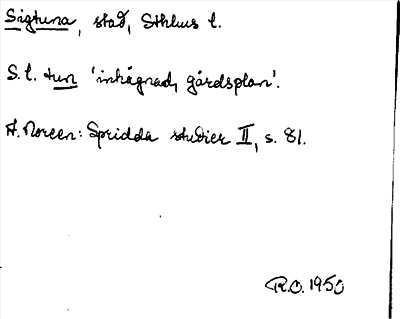 Sigtuna, stad, Sthlms l.
S. l. tun 'inhägnad, gårdsplan'.
A. Noreen: Spridda studier II, s. 81.
R.O. 1950